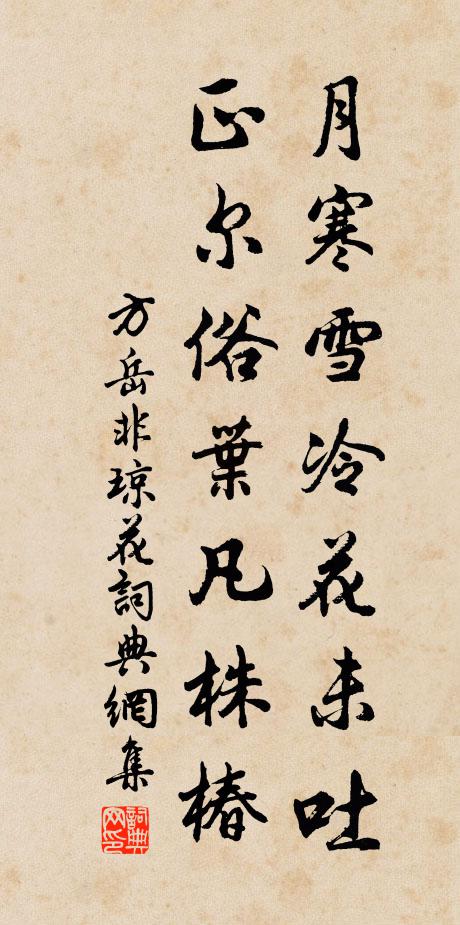 月寒雪冷花未吐
正尔俗葉凡株椿
方岳非琼花詞典網集
詞典网印